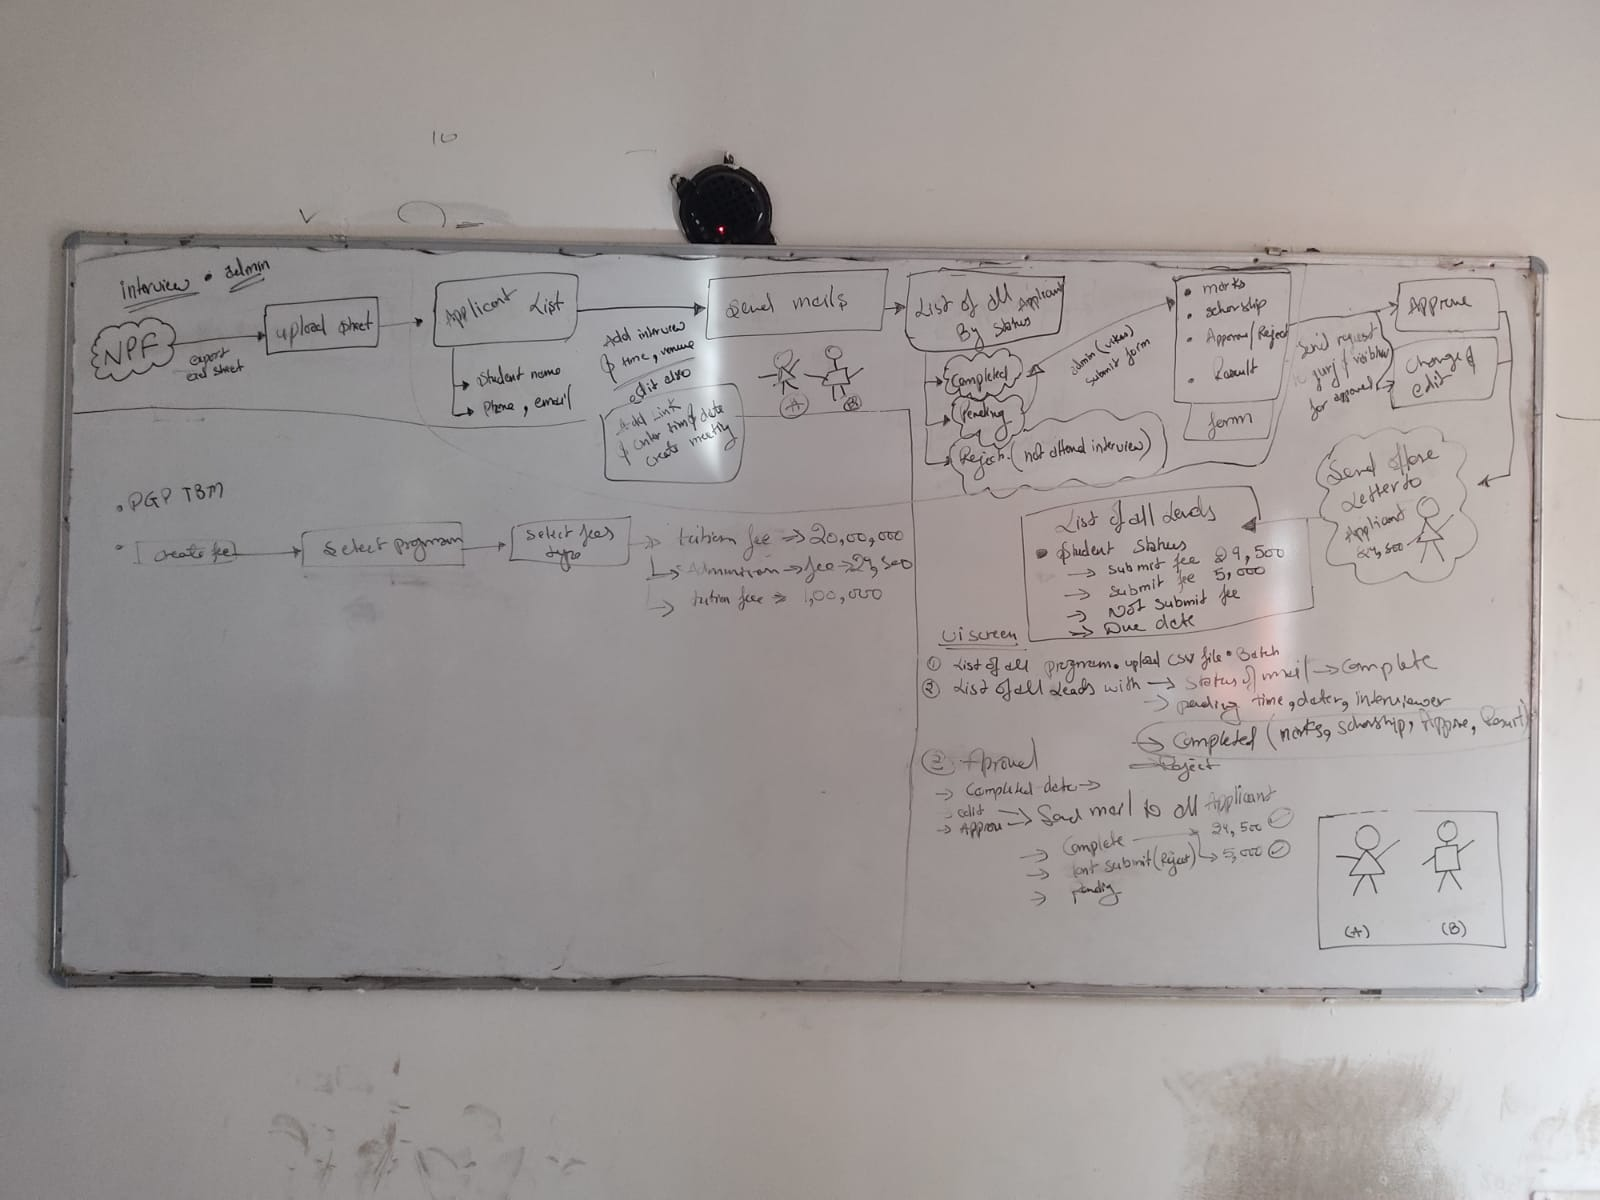 10
interview • admin
NPF
export
excel sheet
upload sheet
Applicant List
→ Student name
→ Phone, email
Add interview
time, venue
edit also
Add Link
enter time & date
create meeting
Send mails
A
B
List of all Applicant
By Status
Completed
Pending
Reject. (not attend interview)
submit form
• marks
• scholership
• Approve/Reject
• Result
form
Send request
for approval
Approve
Change &
edit
Send offere
Letter to
Applicant
24,500
• PGP TBM
• create fee
Select program
Select fees
type
→ tution fee → 20,00,000
→ Admission → fee → 24,500
→ tution fee → 1,00,000
List of all Leads
• Student Status
→ submit fee 24,500
→ submit fee 5,000
→ Not submit fee
→ Due date
UI screen
① List of all program • upload CSV file • Batch
② List of all Leads with → Status of mail → complete
→ pending time, date, interviewer
→ Completed (marks, scholership, Approve, Result)
→ Reject
③ Aproval
→ Completed data →
→ edit
→ Approve → Send mail to all Applicant
→ Complete → 24,500
→ submit (Reject) → 5,000
→ pending
(A)
(B)